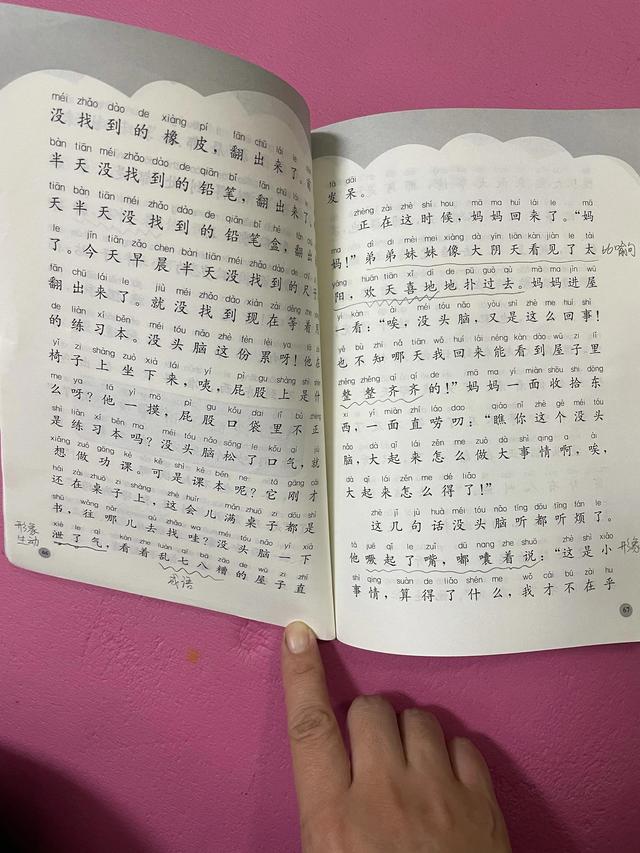 méi zhǎo dào de xiàng pí fān chū lái le
没找到的橡皮，翻出来了。
bàn tiān méi zhǎo dào de qiān bǐ fān chū lái le
半天没找到的铅笔，翻出来了。
tiān bàn tiān méi zhǎo dào de qiān bǐ hé fān chū
天半天没找到的铅笔盒，翻出
le jīn tiān zǎo chen bàn tiān méi zhǎo dào de chǐ
了。今天早晨半天没找到的尺
fān chū lái le jiù méi zhǎo dào xiàn zài děng zhe
翻出来了。就没找到现在等着
de liàn xí běn méi tóu nǎo zhè fèn lèi ya tā
的练习本。没头脑这份累呀！他在
yǐ zi shàng zuò xià lái yí pì gu shàng shì shén
椅子上坐下来，咦，屁股上是什
me ya tā yì mō pì gu kǒu dai lǐ bú zhèng
么呀？他一摸，屁股口袋里不正
shì liàn xí běn ma méi tóu nǎo sōng le kǒu qì jiù
是练习本吗？没头脑松了口气，就
xiǎng zuò gōng kè kě shì kè běn ne tā gāng cái
想做功课。可是课本呢？它刚才
hái zài zhuō zi shàng zhè huìr mǎn zhuō zi dōu shì
还在桌子上，这会儿满桌子都是
shū wǎng nǎr qù zhǎo wa méi tóu nǎo yí xià
书，往哪儿去找哇？没头脑一下
xiè le qì kàn zhe luàn qī bā zāo de wū zi zhí
泄了气，看着乱七八糟的屋子直
形象
生动
成语
66
fā dāi
发呆。
zhèng zài zhè shí hou mā ma huí lái le mā
正在这时候，妈妈回来了。“妈
ma dì di mèi mei xiàng dà yīn tiān kàn jiàn le tài
妈！”弟弟妹妹像大阴天看见了太
比喻句
yáng huān tiān xǐ dì de pū guò qù mā ma jìn wū
阳，欢天喜地地扑过去。妈妈进屋
yí kàn ài méi tóu nǎo yòu shì zhè me huí shì
一看：“唉，没头脑，又是这么回事！
yě bù zhī nǎ tiān wǒ huí lái néng kàn dào wū zi lǐ
也不知哪天我回来能看到屋子里
zhěng zhěng qí qí de mā ma yí miàn shōu shi dōng
整整齐齐的！”妈妈一面收拾东
xi yí miàn zhí láo dao qiáo nǐ zhè ge méi tóu
西，一面直唠叨：“瞧你这个没头
nǎo dà qǐ lái zěn me zuò dà shì qing a ài
脑，大起来怎么做大事情啊，唉，
dà qǐ lái zěn me dé liǎo
大起来怎么得了！”
zhè jǐ jù huà méi tóu nǎo tīng dōu tīng fán le
这几句话没头脑听都听烦了。
tā juē qǐ le zuǐ dū nang zhe shuō zhè shì xiǎo
他噘起了嘴，嘟囔着说：“这是小
形象
shì qing suàn de liǎo shén me wǒ cái bú zài hu
事情，算得了什么，我才不在乎
67